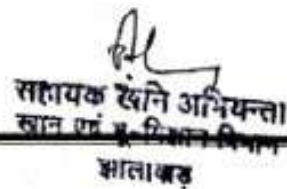 सहायक खनि अभियन्ता
खान एवं भू-विज्ञान विभाग
झालावाड़